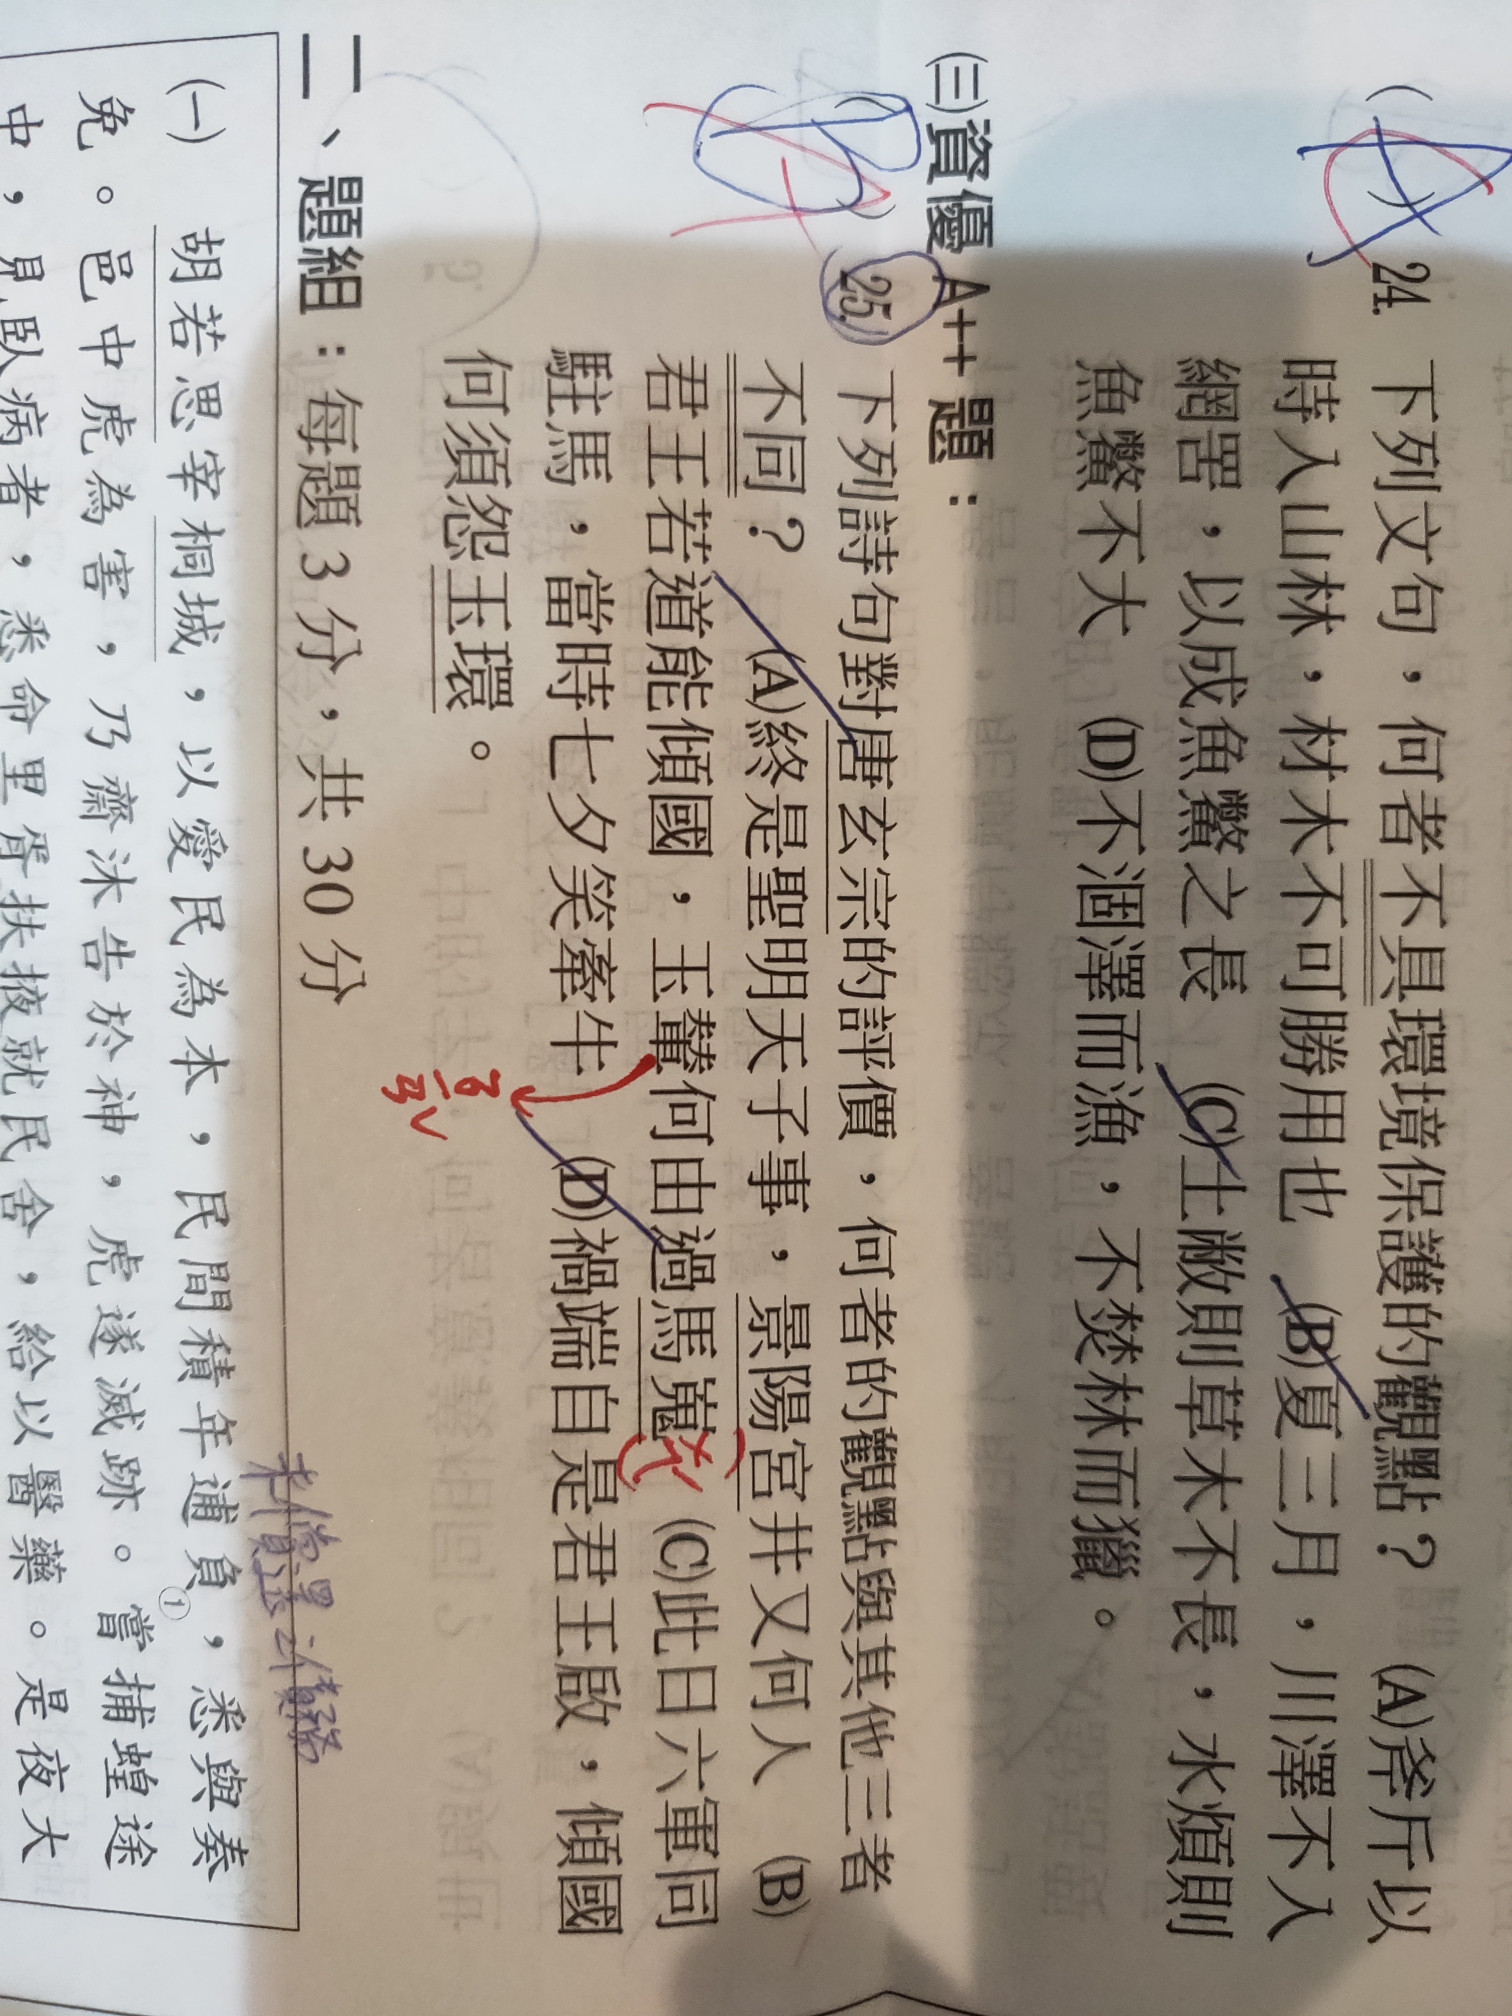 (A) 24. 下列文句，何者不具環境保護的觀點？ (A)斧斤以
時入山林，材木不可勝用也 (B)夏三月，川澤不入
網罟，以成魚鱉之長 (C)土敝則草木不長，水煩則
魚鱉不大 (D)不涸澤而漁，不焚林而獵。
㈢資優 A++ 題：
(B) A 25. 下列詩句對唐玄宗的評價，何者的觀點與其他三者
不同？ (A)終是聖明天子事，景陽宮井又何人 (B)
君王若道能傾國，玉輦何由過馬嵬 (C)此日六軍同
駐馬，當時七夕笑牽牛 (D)禍端自是君王啟，傾國
何須怨玉環。
二、題組：每題 3 分，共 30 分
㈠ 胡若思宰桐城，以愛民為本，民間積年逋負①，悉與奏
未償還之債務
免。邑中虎為害，乃齋沐告於神，虎遂滅跡。嘗捕蝗途
中，見臥病者，悉命里胥扶掖就民舍，給以醫藥。是夜大